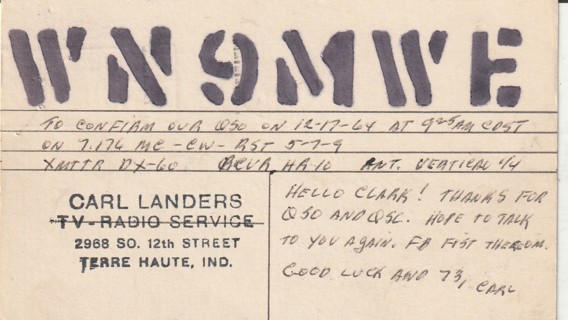 WN9MWE
TO CONFIRM OUR QSO ON 12-17-64 AT 925AM COST
ON 7.176 MC - CW - RST 5-7-9
XMTTR DX-60 RCVR HR10 ANT. VERTICAL 1/4
CARL LANDERS
TV-RADIO SERVICE
2968 SO. 12th STREET
TERRE HAUTE, IND.
HELLO CLARK! THANKS FOR
QSO AND QSL. HOPE TO TALK
TO YOU AGAIN. FB FIST THERE OM.
GOOD LUCK AND 73,
CARL